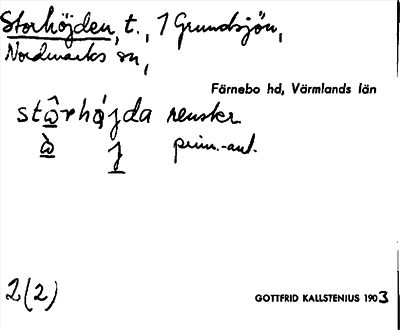 Storhöjden, t., 1 Grundsjön,
Nordmarks sn,
Färnebo hd, Värmlands län
renskr.
prim.-ant.
2(2)
GOTTFRID KALLSTENIUS 1903